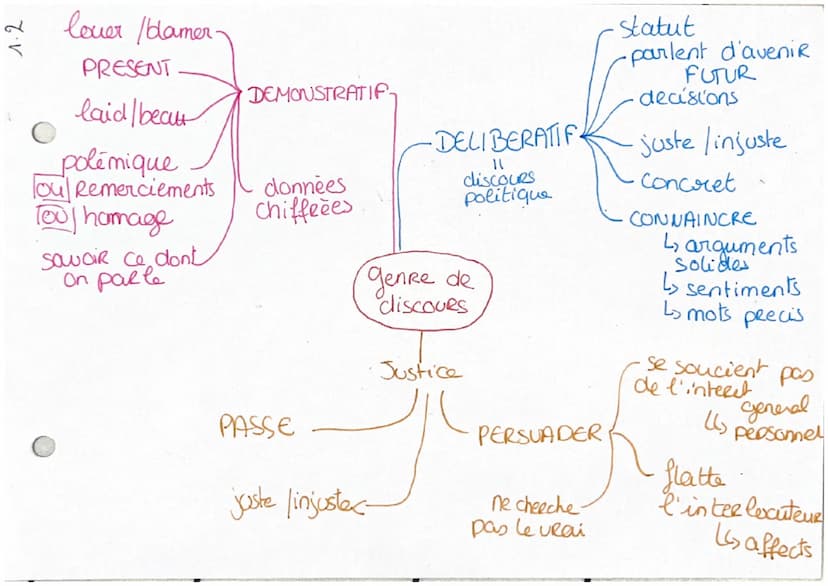 1.2
louer / blamer
PRESENT
laid / beau
polémique
ou Remerciements
ou homage
savoir ce dont
on parle
DEMONSTRATIF
données
chiffeées
DELIBERATIF
=
discours
politique
statut
parlent d'avenir
FUTUR
decisions
juste / injuste
concret
CONNAINCRE
↳ arguments
solides
↳ sentiments
↳ mots precis
genre de
discours
Justice
PASSE
juste / injuste
PERSUADER
ne cherche
pas le vrai
se soucient pas
de l'interet
general
↳ personnel
flatte
l'interlocuteur
↳ affects